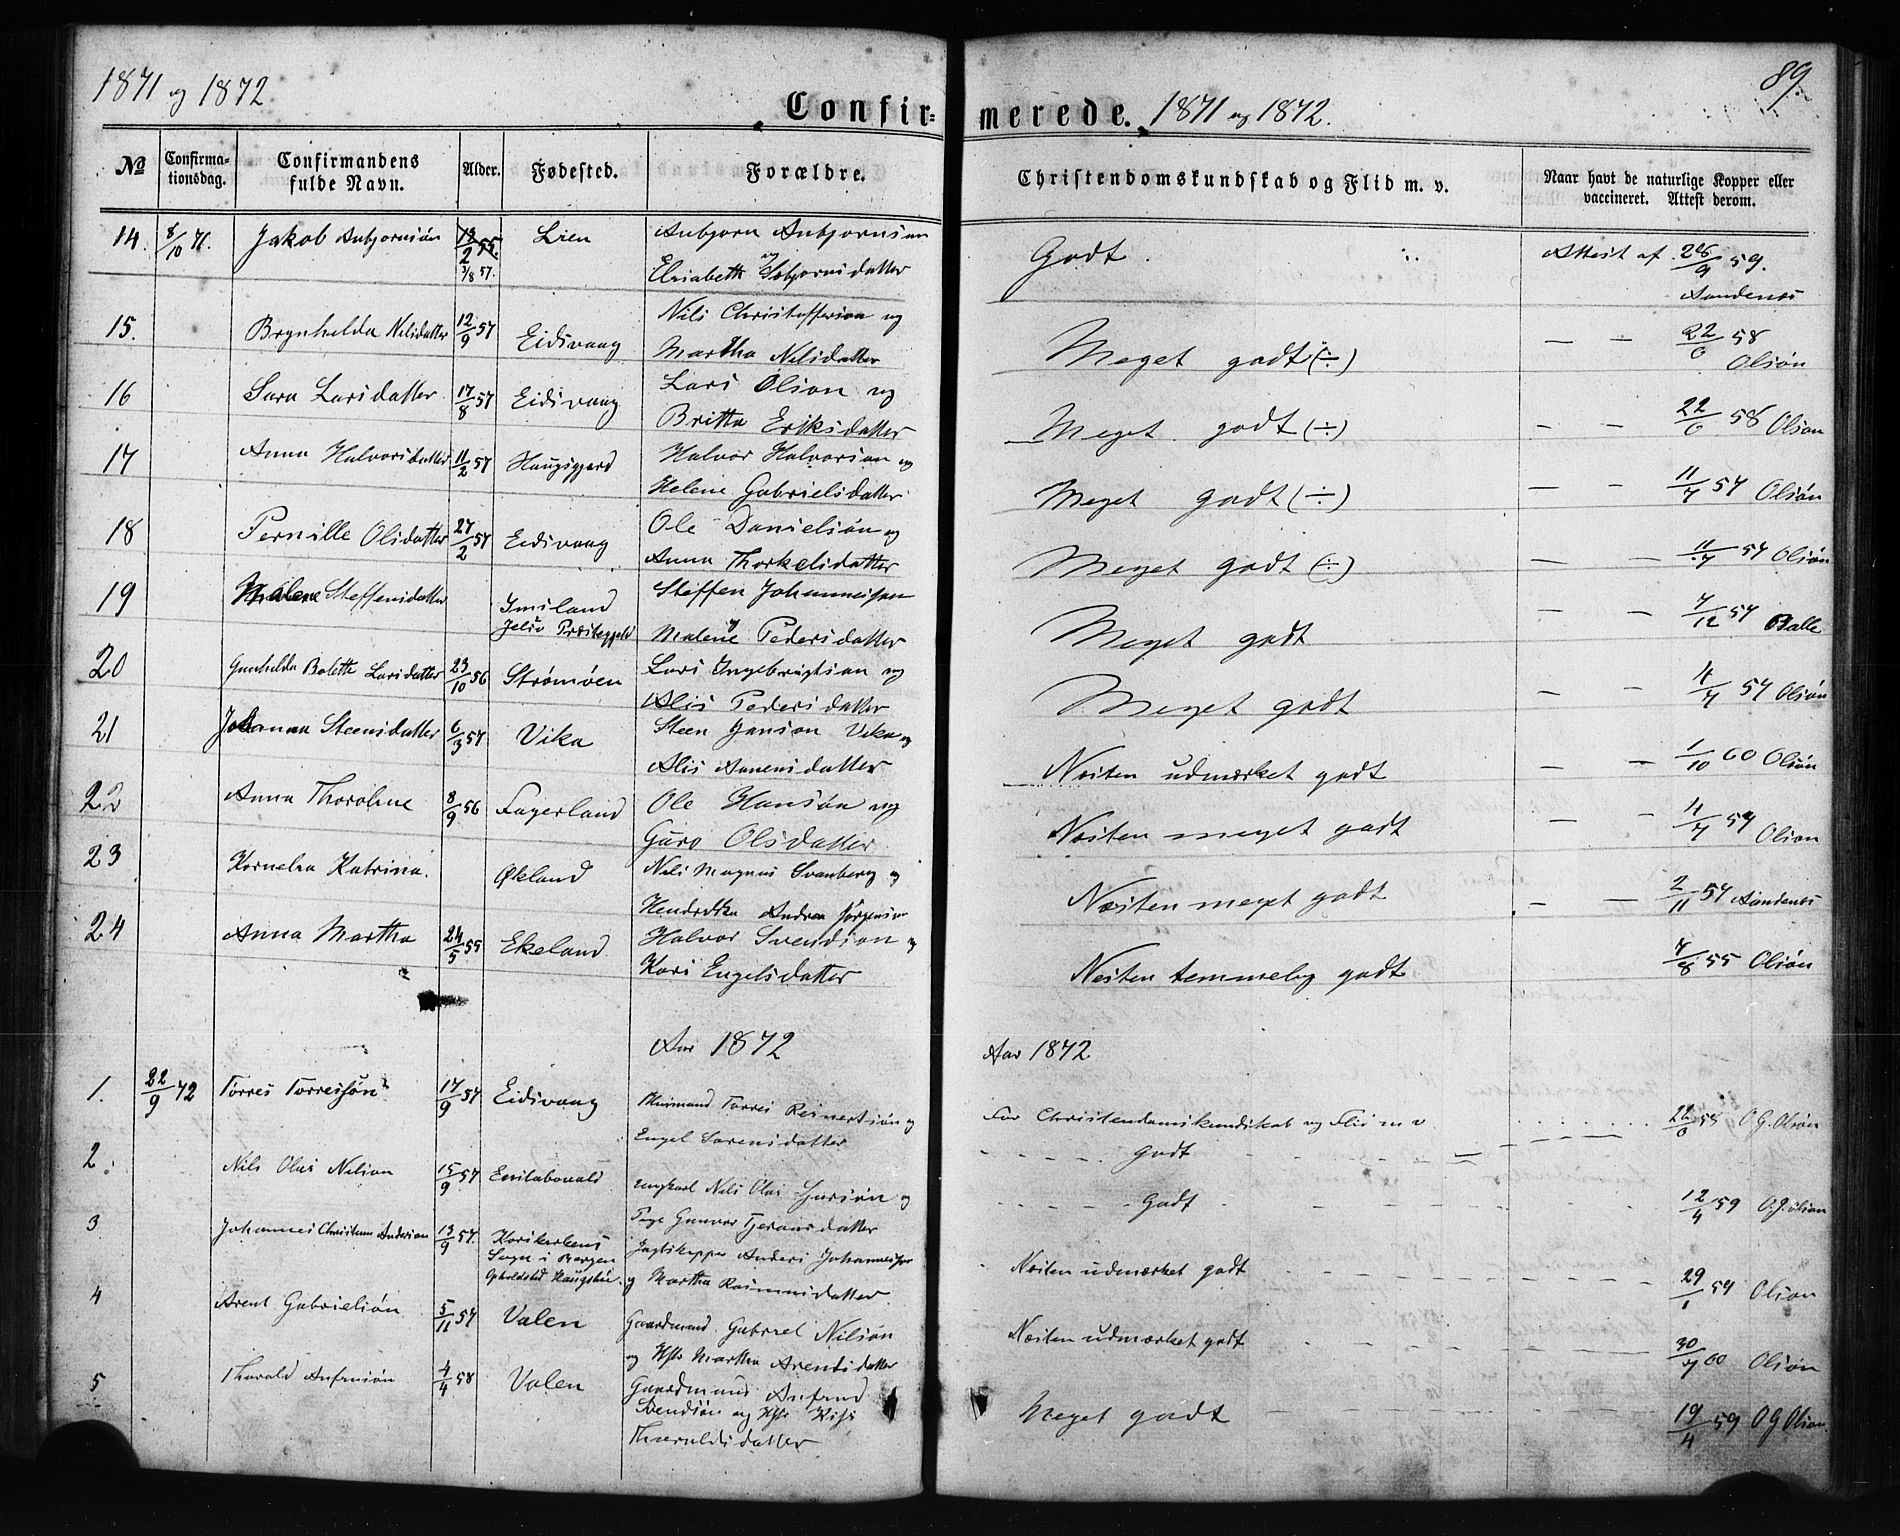 1871 og 1872
89.
Confir- merede. 1871 og 1872.
No
Confirma-
tionsdag.
Confirmandens
fulde Navn.
Alder.
Fødested.
Forældre.
Christendomskundskab og Flid m. v.
Naar havt de naturlige Kopper eller
vaccineret. Attest derom.
14. 8/10 71. Jakob Anbjornsøn Lien Anbjorn Anbjornsøn
og
Elisabeth Sebjornsdatter
Godt. Attest af 28/9 59.
Aandenes
15. Brynhelda Nilsdatter 12/9 57 Eidsvaag Nils Christoffersøn og
Martha Nilsdatter
Meget godt (÷) — — 22/6 58
Olsøn
16 Sara Larsdatter 17/8 57 Eidsvaag Lars Olson og
Britta Eriksdatter
Meget godt (÷) — — 22/6 58 Olson
17 Anna Halvorsdatter 11/2 57 Haugsgjerd Halvor Halvorsøn og
Helene Gabrielsdatter
Meget godt (÷) — — 11/7 57 Olsøn
18 Pernille Olsdatter 27/2 57 Eidsvaag Ole Danielsøn og
Anna Thorkelsdatter
Meget godt (÷) — — 11/7 57 Olsøn
19 Malene Steffensdatter Imsland
Jelsø Præstegjeld
Steffen Johannessøn
og
Malene Pedersdatter
Meget godt — — 7/12 57 Balle
20 Gunhilda Bolette Larsdatter 23/10 56 Strømøen Lars Ingebrigtsøn og
Alis Pedersdatter
Meget godt — — 11/7 57 Olsøn
21 Johanna Steensdatter 6/3 57 Vika Steen Jansøn Vika og
Alis Aanensdatter
Næsten udmærket godt — — 1/10 60 Olsøn
22 Anna Thoroline 8/9 56 Fagerland Ole Hansøn og
Guro Olsdatter
Næsten meget godt — — 11/7 57 Olson
23 Kornelia Katrina. Økland Nils Magnus Svanberg og
Hendrikka Andrea Jørgensen
Næsten meget godt — — 2/11 57 Aandenes
24 Anna Martha 24/5 55 Ekeland Halvor Svendsøn og
Kari Engelsdatter
Næsten temmelig godt 7/8 55 Olsøn
Aar 1872
Aar 1872
1. 22/9 72 Torres Torresøn 17/9 57 Eidsvaag Torres Reinertsøn og
Engel Sørensdatter
For Christendomskundskab og Flid m v
Godt 22/6 58 O G. Olsøn
2. Nils Olai Nilson 15/9 57 Ungkarl Nils Olai og
Pige Gunvor Tjeransdatter
Godt 12/4 59 O. G. Olson
3 Johannes Christian Anderson 13/9 57. Korskirkens
Sogn i Bergen
Opholdsted
Jagtskipper Anders Johannessøn
og Martha Rasmusdatter
Næsten udmærket godt 29/1 59 Olson
4 Arent Gabrielsøn 5/11 57 Valen Gaardmand Gabriel Nilsøn
og Hstr Martha Arentsdatter
Næsten udmærket godt 30/7 60 Olsøn
5 Thorald Anfinsøn 4/4 58 Valen Gaardmand Anfind
Svendsøn og Hstr
Thoraldsdatter
Meget godt 19/4 59 O G Olson